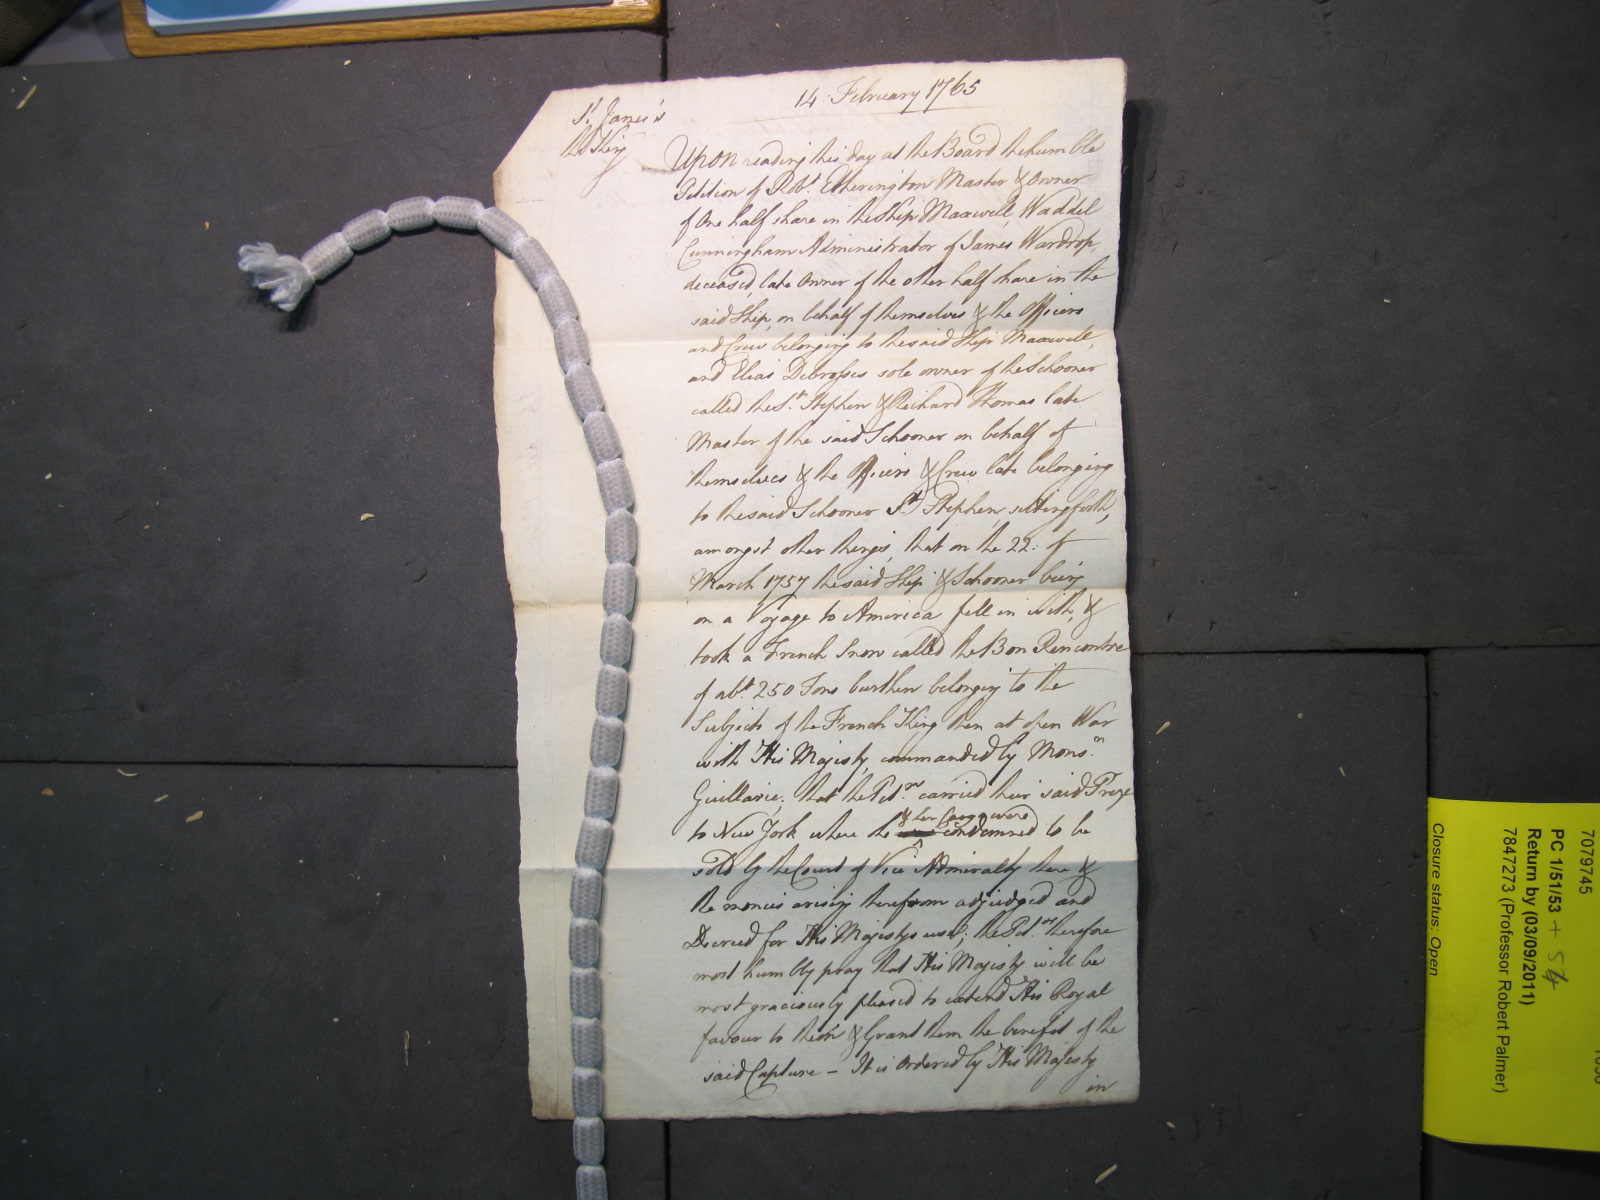 14: February 1765
St. James's
the King
Upon reading this day at the Board the humble
Petition of Robt. Etherington Master & Owner
of One half share in the Ship Maxwell, Waddel
Cunningham Administrator of James Wardrop
deceased, late Owner of the other half share in the
said Ship, on behalf of themselves & the Officers
and Crew belonging to the said Ship Maxwell,
and Elias Debrosses sole owner of the Schooner
called the St. Stephen & Richard Thomas late
Master of the said Schooner on behalf of
themselves & the Officers & Crew late belonging
to the said Schooner St. Stephen, setting forth,
amongst other things, that on the 22: of
March 1757 the said Ship & Schooner being
on a Voyage to America fell in with, &
took a French Snow called the Bon Rencontre
of abt. 250 Tons burthen belonging to the
Subjects of the French King then at open War
with His Majesty, commanded by Monsr.
Guillarie; that the Petrs. carried their said Prize
to New York where the & her Cargo were condemned to be
sold by the Court of Vice Admiralty there &
the monies arising therefrom adjudged and
Decreed for His Majestys use; the Petrs. therefore
most humbly pray that His Majesty will be
most graciously pleased to extend His Royal
favour to them & Grant them the benefit of the
said Capture – It is Ordered by His Majesty
in
7079745
PC 1/51/53 + 54
Return by (03/09/2011)
7847273 (Professor Robert Palmer)
Closure status: Open